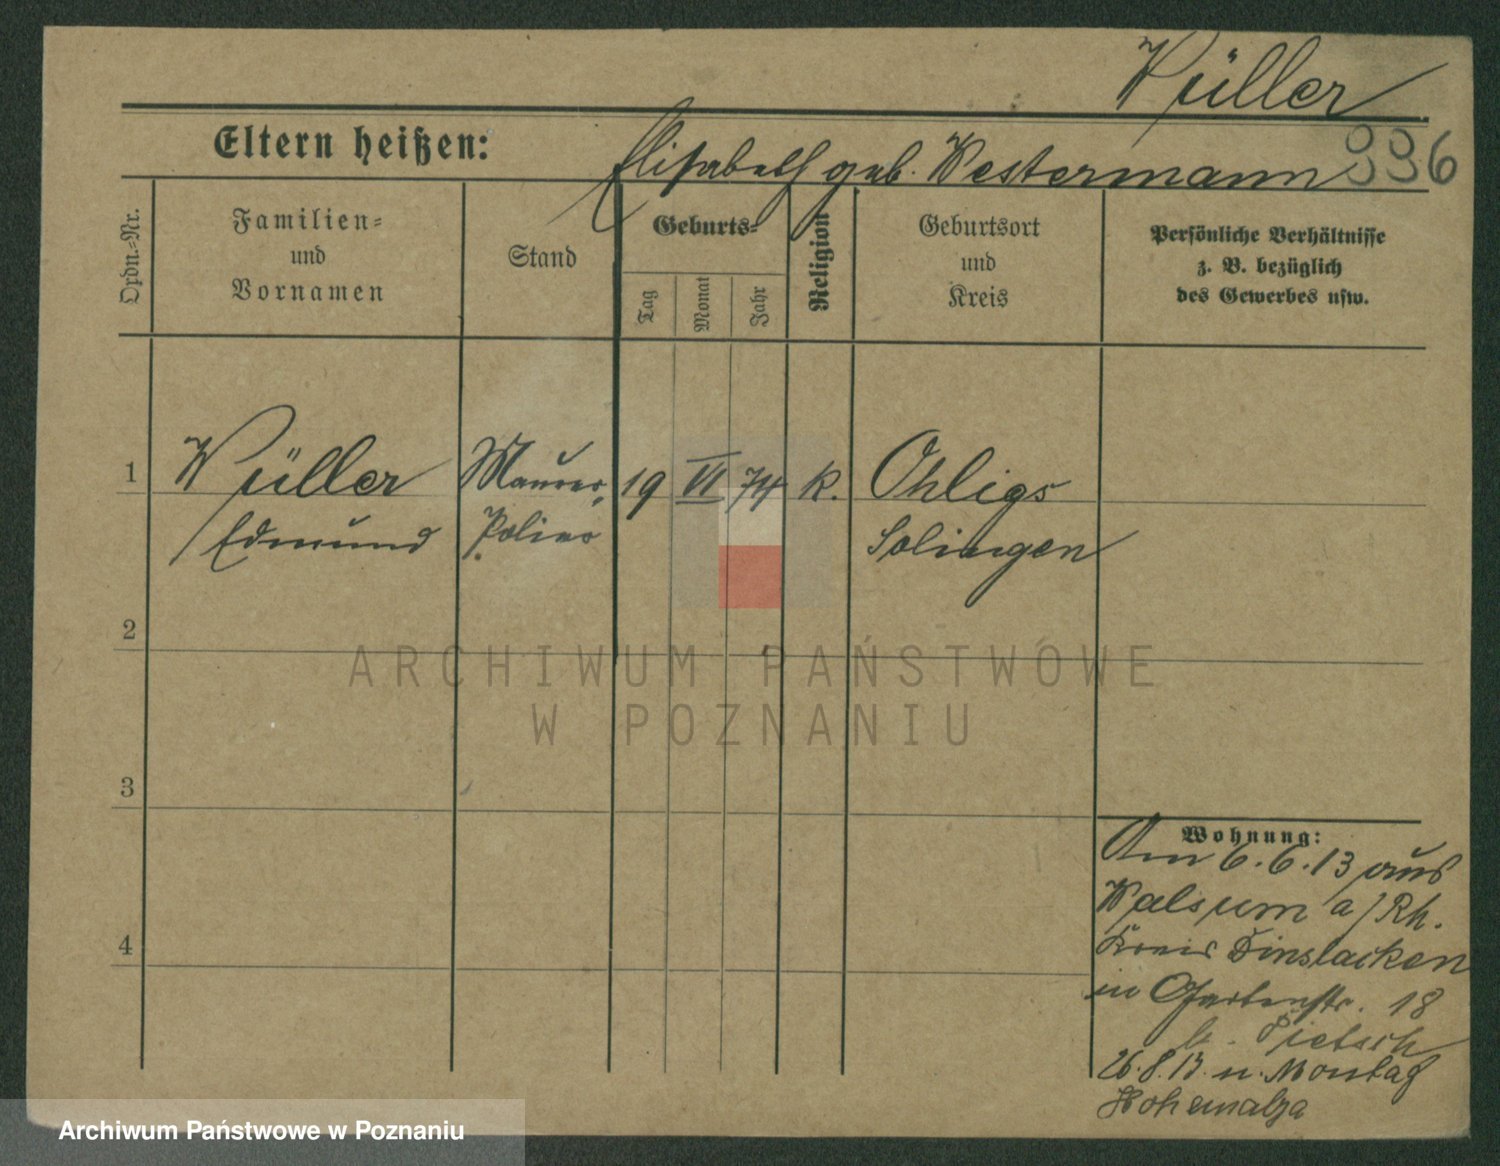 Wüller
Eltern heißen:
Elisabeth geb. Westermann
996
Ordn.-Nr.
Familien-
und
Vornamen
Stand
Geburts-
Tag
Monat
Jahr
Religion
Geburtsort
und
Kreis
Persönliche Verhältnisse
z. B. bezüglich
des Gewerbes usw.
1
Wüller
Edmund
Maurer
Polier
19
VI
74
k.
Ohligs
Solingen
2
3
4
ARCHIWUM PAŃSTWOWE
W POZNANIU
Wohnung:
Am 6.6.13 aus
Walsum a/Rh.
Kreis Dinslacken
in Gartenstr. 18
b. Pietsch
26.8.13. n. Montag
Hohensalza
Archiwum Państwowe w Poznaniu